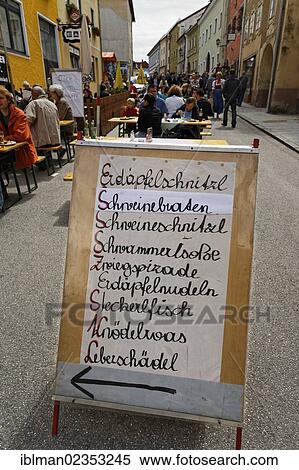 Erdäpfelschnitzl
Schweinebraten
Schweineschnitzel
Schwammerlsoße
Erdäpfelnudeln
Steckerlfisch
Knödelwas
Leberschädel
FOTOSEARCH
iblman02353245 www.fotosearch.com